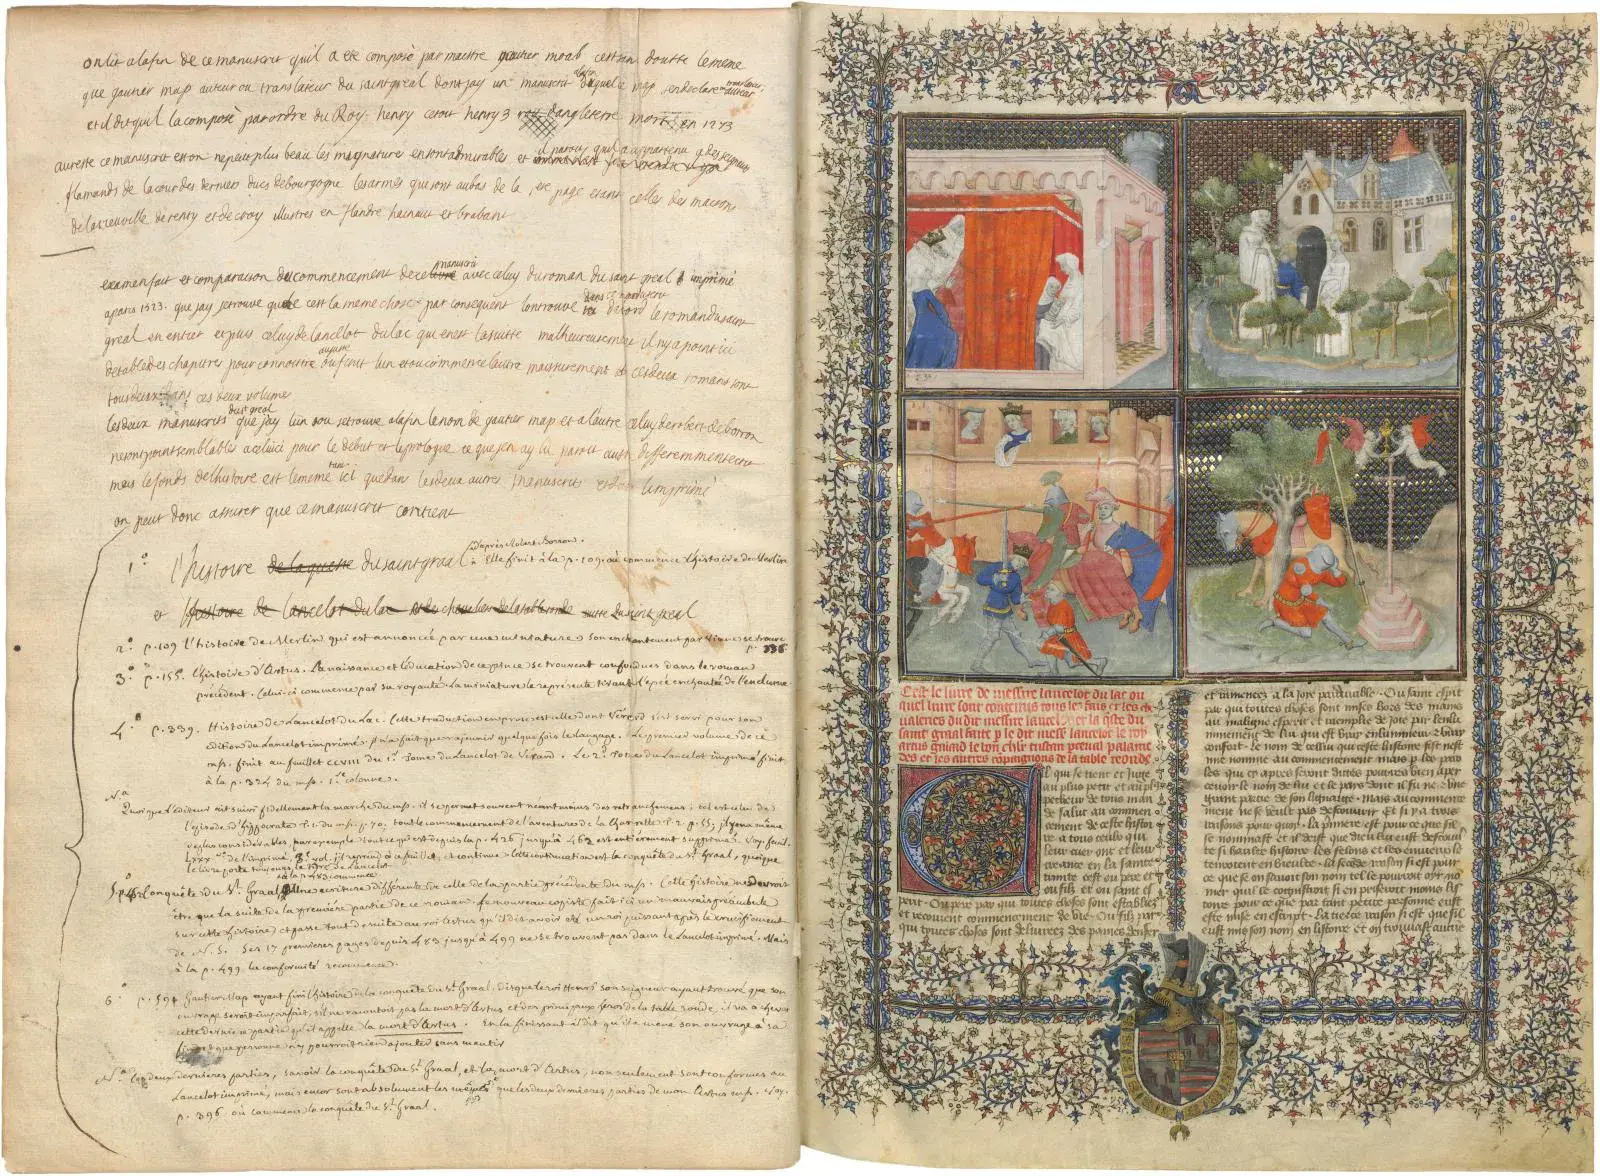 on lit a la fin de ce manuscrit qu'il a ete composé par maitre gautier moab cest sans doutte le meme
que gautier map auteur ou translateur du saint greal dont jay un manuscrit duquel map se declare
et il dit qu'il la composé par ordre du Roy henry cetoit henry 3 roy d'angleterre mort en 1273
au reste ce manuscrit est on ne peut plus beau les mignature en sont admirables et il paroit qu'il a appartenu a des seigneurs
flamands de la cour des derniers ducs de bourgogne les armes qui sont au bas de la 1ere page etant celles des maisons
de la vieuville de renty et de croy illustres en flandre hainaut et brabant
examen fait et comparaison du commencement de ce manuscrit avec celuy du roman du saint greal imprimé
a paris 1523. que jay je trouve que cest la meme chose par consequent lon trouve dans ce manuscrit d'abord le roman du saint
greal en entier et puis celuy de lancelot du lac qui en est la suitte malheureusement il ny a point ici
de table des chapitres pour connoitre au juste ou finit l'un et ou commence l'autre mais surement ces deux romans sont
tous deux dans ces deux volume
les deux manuscrits du st greal que jay lun ou je trouve a la fin le nom de gautier map et a lautre celuy de robert de borron
ne sont point semblables a celuici pour le debut et le prologue ce que jen ay lu paroit aussi differemment ecrit
mais le fonds de l'histoire est le meme tant ici que dans les deux autres manuscrits et dans l'imprimé
on peut donc assurer que ce manuscrit contient
1° l'histoire de la quette du saint graal d'après Robert Borron. Elle finit à la p. 109 où commence l'histoire de Merlin
et l'histoire de lancelot du lac et des chevaliers de la table ronde suitte du saint greal
2° p. 109 l'histoire de Merlin qui est annoncée par une miniature son enchantement par Viviane se trouve
p. 336
3° p. 155. l'histoire d'Artus. La naissance et l'éducation de ce prince se trouvent confondues dans le roman
précédent. Celui-ci commence par sa royauté. La miniature le représente tirant l'épée enchantée de l'enclume.
4° p. 339. Histoire de Lancelot du Lac. Cette traduction en prose est elle dont Vérard s'est servi pour son
édition du Lancelot imprimé. Il n'a fait que rajeunir quelquefois le langage. Le premier volume de ce
ms. finit au feuillet CCVIII du 1er Tome du Lancelot de Vérard. Le 2e Tome du Lancelot imprimé finit
à la p. 324 du ms. 1ere colonne.
Na
Quoique l'éditeur ait suivi fidellement la marche du ms. il se permet souvent néantmoins des retranchemens; tel est celui de
l'épisode d'hippocrate T. 1. du ms. p. 70, tout le commencement de l'aventure de la charrette T. 2. p. 55; il y en a même
de plus considérables, par exemple tout ce qui est depuis la p. 426 jusqu'à 463 est entièrement supprimé. Voy. feuil.
LXXX de l'imprimé, 3e vol. il reprend à ce feuillet, et continue. Cette continuation est la conquête du St. Graal, quoique
le livre porte toujours le titre de Lancelot
à la p. 483 commence
5° La Conquête du St. Graal, d'une écriture différente de celle de la partie précédente du ms. Cette histoire ne devroit
être que la suite de la première partie de ce roman. Le nouveau copiste fait ici un mauvais préambule
sur cette histoire et passe tout de suite au roi Artus qu'il dit avoir été un roi puissant après le crucifiement
de N. S. Les 17 premières pages depuis 483 jusqu'à 499 ne se trouvent pas dans le Lancelot imprimé. Mais
à la p. 499 la conformité recommence.
6° p. 594 Gautier Map ayant fini l'histoire de la conquête du St. Graal, dit que le roi Henri son seigneur ayant trouvé que son
ouvrage seroit imparfait, s'il ne racontoit pas la mort d'Artus et des principaux héros de la table ronde, il va achever
cette dernière partie qu'il appelle la mort d'Artus. En la finissant il dit qu'il a mené son ouvrage à sa
fin et que personne n'y pourroit rien ajouter sans mentir
Na Les deux dernières parties, savoir la conquête du St. Graal, et la mort d'Artus, non seulement sont conformes au
Lancelot imprimé, mais encor sont absolument les mêmes que les deux dernières parties de mon Artus ms. Voy.
p. 396 où commence la conquête du St. Graal.
(3479)
Cest le liure de messire lancelot du lac ou
quel liure sont contenus tous les fais et les che
ualeries du dit messire lancelot et la queste du
saint graal faite par le dit messire lancelot le roy
artus galaad le bon chevalier tristan perceual palame
des et les autres compaignons de la table reonde
Cil qui se tient et juge
au plus petit et au plus
pecheur de tous man
de salut au commen
cement de ceste histoi
re a tous ceulx qui
leur cuer ont et leur
creance en la sainte
trinite cest ou pere et
ou filz et ou saint es
perit. Ou pere par qui toutes choses sont establies
et recoiuent commencement de vie. Ou filz par
qui toutes choses sont deliurees des paines denfer
et ramenees a la ioie pardurable. Ou saint esperit
par qui toutes choses sont mises hors des mains
au maligne esperit et raemplie de joie par lenlu
minement de lui qui est vray enlumineur et vray
confort. Le nom de cellui qui ceste histoire fist nest
me nomme au commencement mais par les paro
les qui cy apres seront dittes pourres bien aper
ceuoir le nom de lui et le pays dont il fu ne et une
grant partie de son lignage. mais au commence
ment ne se veult pas descouurir. Et si y a trois
raisons pour quoy. La premiere est pour ce que sil
se nommast et il deist que dieu eust descouuert